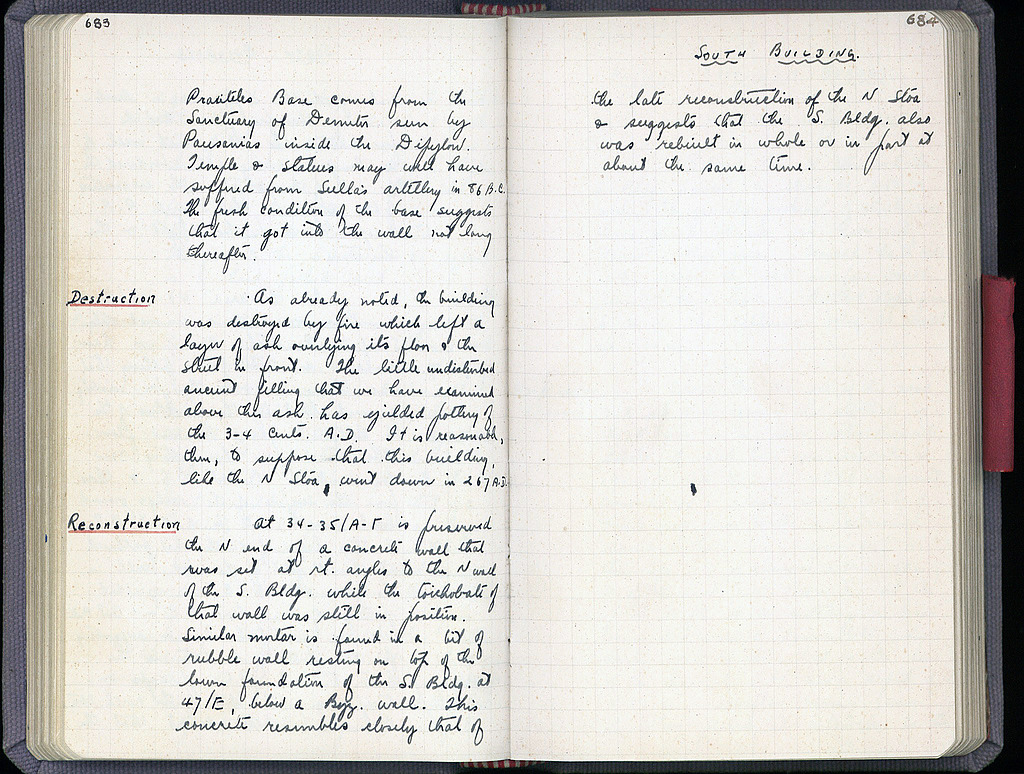 683
Praxiteles Base comes from the
Sanctuary of Demeter seen by
Pausanias inside the Dipylon.
Temple & statues may well have
suffered from Sulla's artillery in 86 B.C.
The fresh condition of the base suggests
that it got into the wall not long
thereafter.
Destruction
As already noted, the building
was destroyed by fire which left a
layer of ash overlying its floor & the
street in front. The little undisturbed
ancient filling that we have examined
above this ash has yielded pottery of
the 3-4 cents. A.D. It is reasonable,
then, to suppose that this building,
like the N Stoa, went down in 267 A.D.
Reconstruction
At 34-35/Α-Γ is preserved
the N end of a concrete wall that
was set at rt. angles to the N wall
of the S. Bldg. while the toichobate of
that wall was still in position.
Similar mortar is found in a bit of
rubble wall resting on top of the
lower foundation of the S. Bldg. at
47/Ε, below a Byz. wall. This
concrete resembles closely that of
684
SOUTH BUILDING.
the late reconstruction of the N Stoa
& suggests that the S. Bldg. also
was rebuilt in whole or in part at
about the same time.